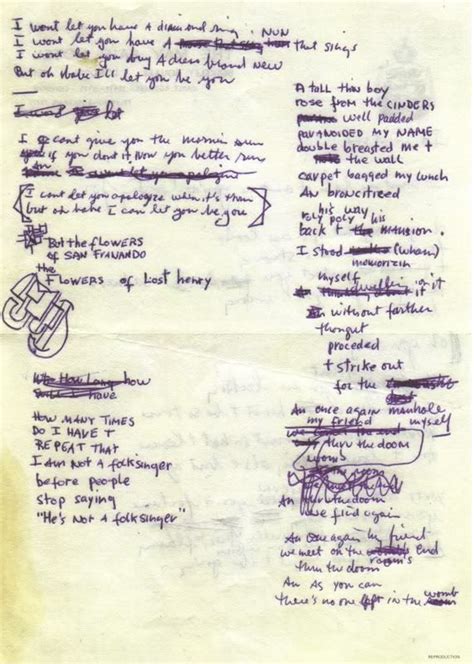 I wont let you have a diamond ring
I wont let you have a NUN that sings
I wont let you buy a dress brand new
But oh babe I'll let you be you
I cant give you the mornin sun
if you dont it now you better run
I cant let you apologize when it's
but oh babe I can let you be you
But the FLOWERS
OF SAN FRANANDO
the
FLOWERS of Lost Henry
how
have
HOW MANY TIMES
DO I HAVE T
REPEAT THAT
I AM NOT A folksinger
before people
stop saying
"He's NOT A folksinger"
A tall thin boy
rose from the CINDERS
well padded
paranoided my NAME
double breasted me t
the wall
carpet bagged my lunch
An broncitized
his way
roly poly his
back t mansion.
I stood (wham)
memorizin
myself
An dwellin on it
An without farther
thought
proceded
t strike out
for the
An once again manhole
my friend myself
thru the dooms
womb
An
we find again
An Once again my friend
we meet on the end
thru the doom room's
An As you can
there's no one left in the womb
REPRODUCTION